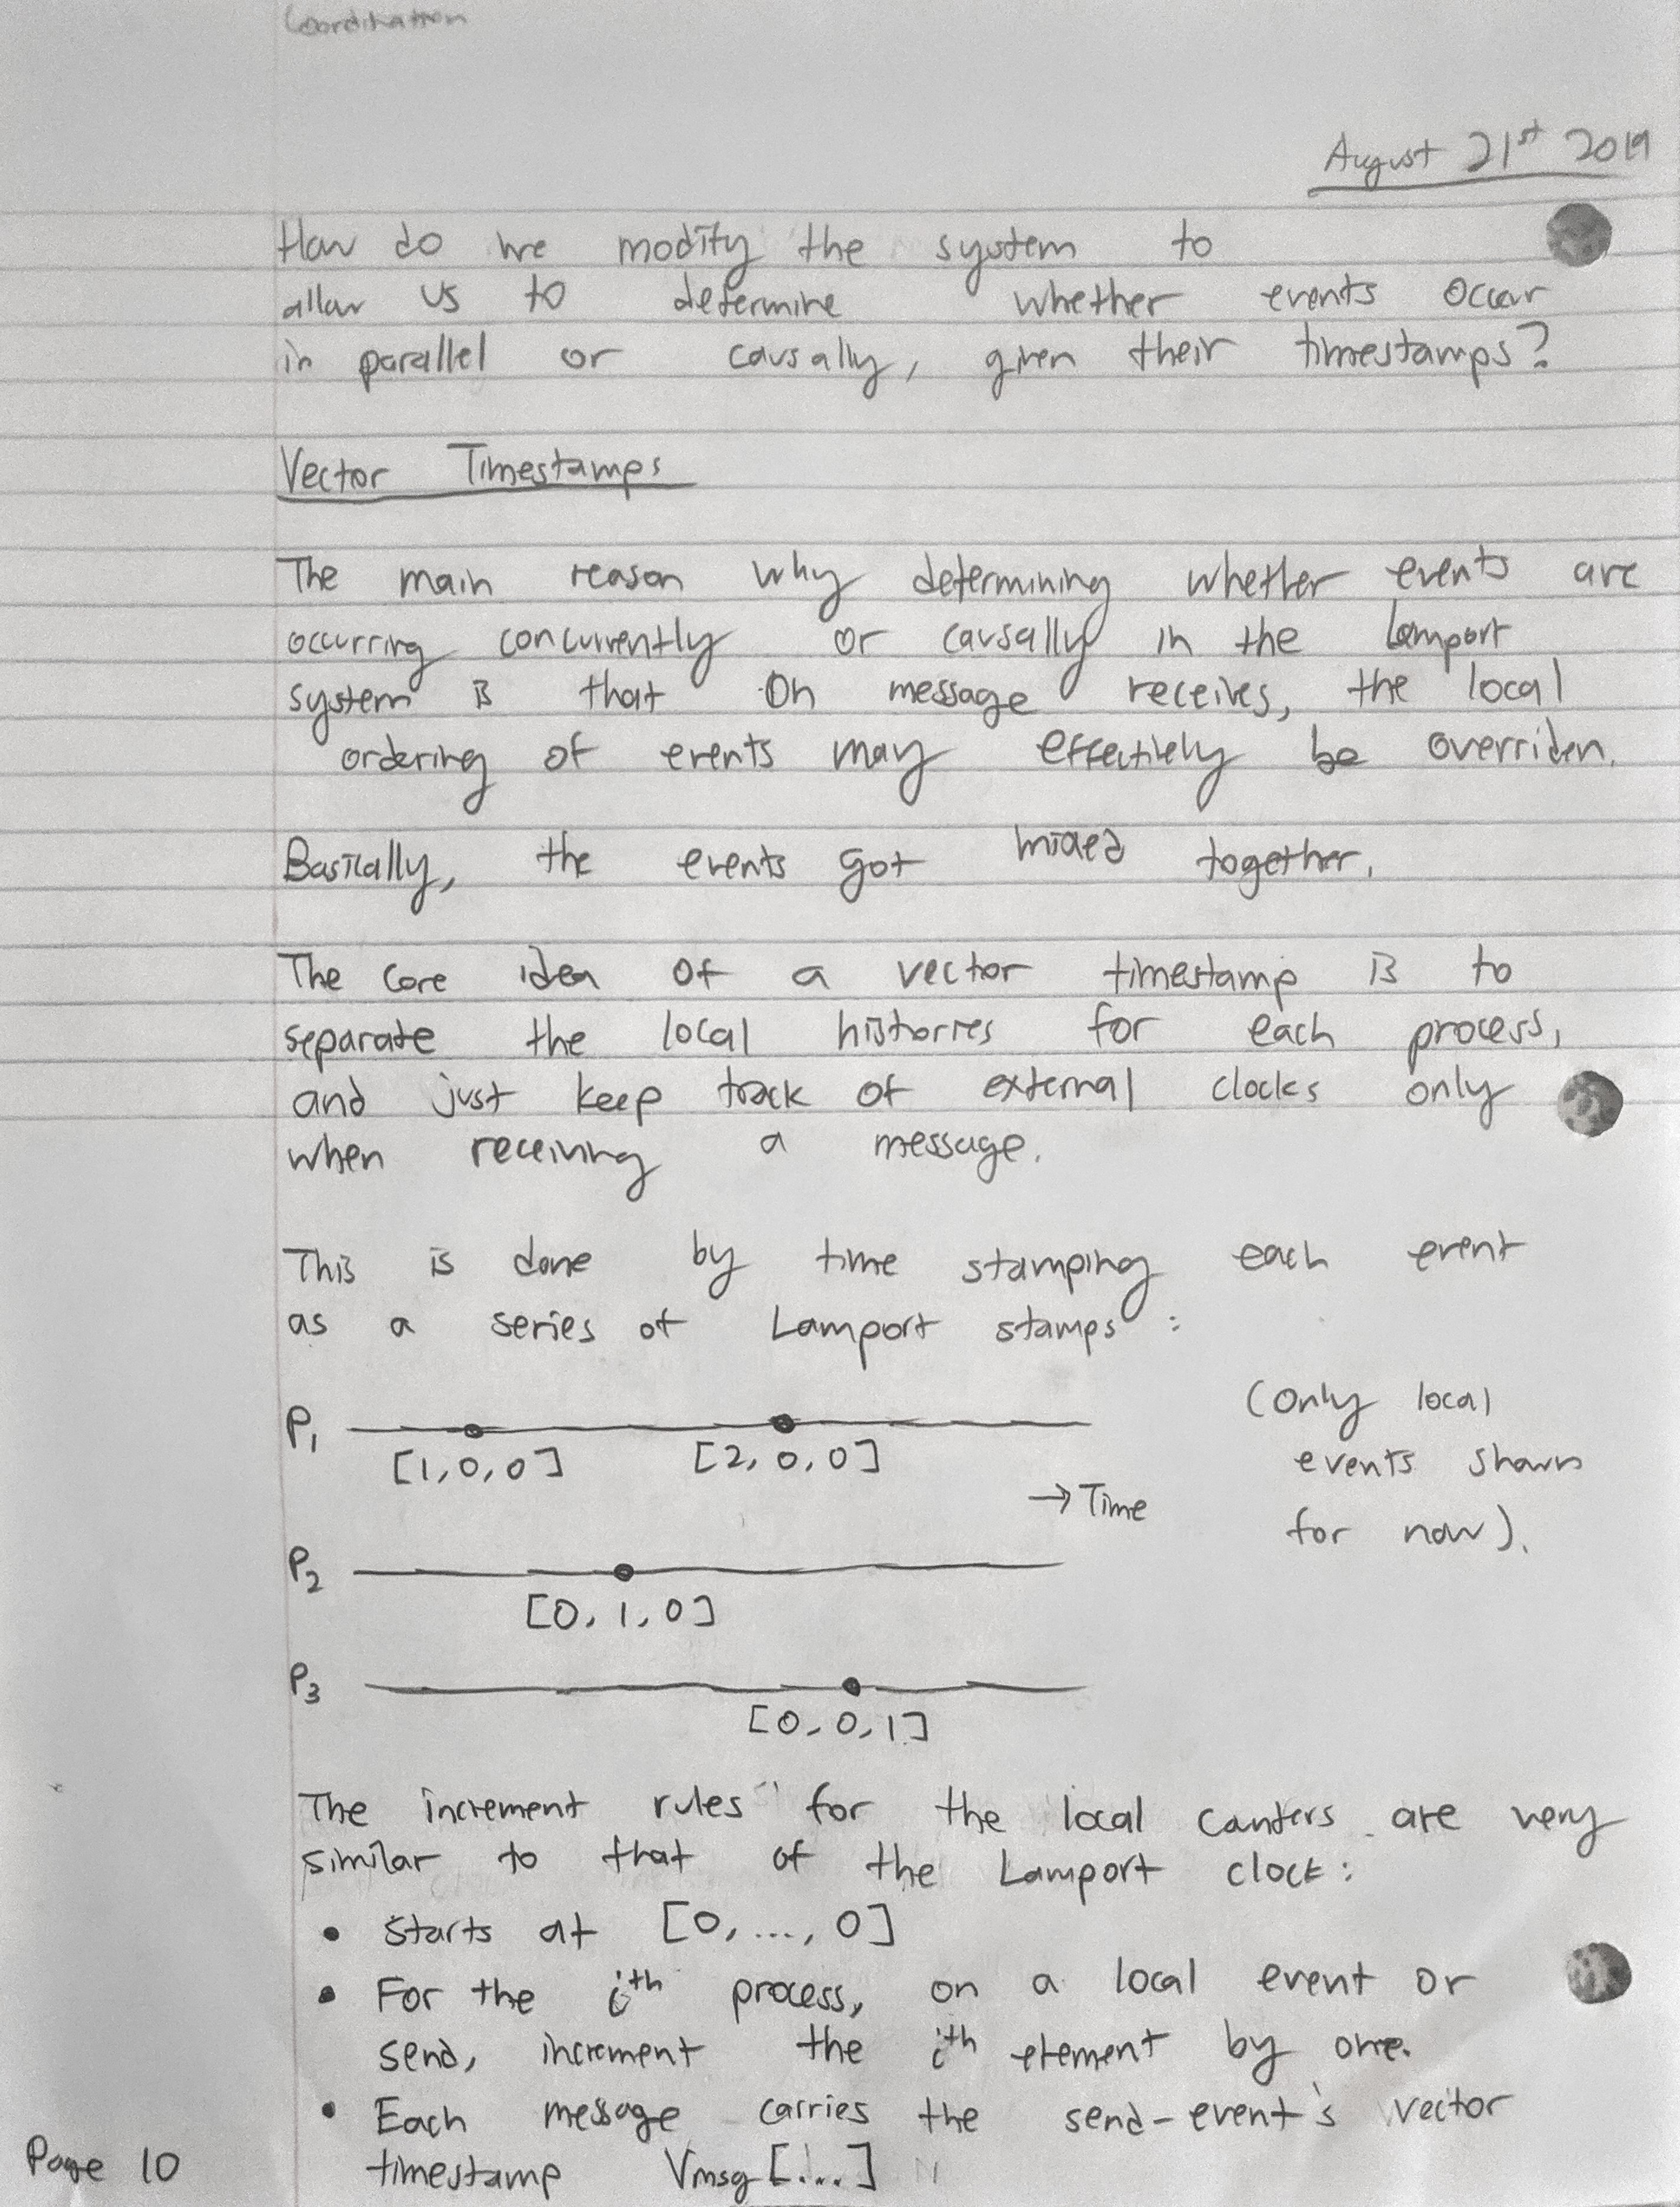 Coordination
August 21st 2019
How do we modify the system to
allow us to determine whether events occur
in parallel or causally, given their timestamps?
Vector Timestamps
The main reason why determining whether events are
occurring concurrently or causally in the Lamport
system is that on message receives, the local
ordering of events may effectively be overriden.
Basically, the events got mixed together.
The core idea of a vector timestamp is to
separate the local histories for each process,
and just keep track of external clocks only
when receiving a message.
This is done by time stamping each event
as a series of Lamport stamps :
P1
[1, 0, 0] [2, 0, 0]
(only local
events shown
for now).
→ Time
P2
[0, 1, 0]
P3
[0, 0, 1]
The increment rules for the local counters are very
similar to that of the Lamport clock :
• Starts at [0, ..., 0]
• For the ith process, on a local event or
send, increment the ith element by one.
• Each message carries the send-event's vector
timestamp Vmsg [...]
Page 10